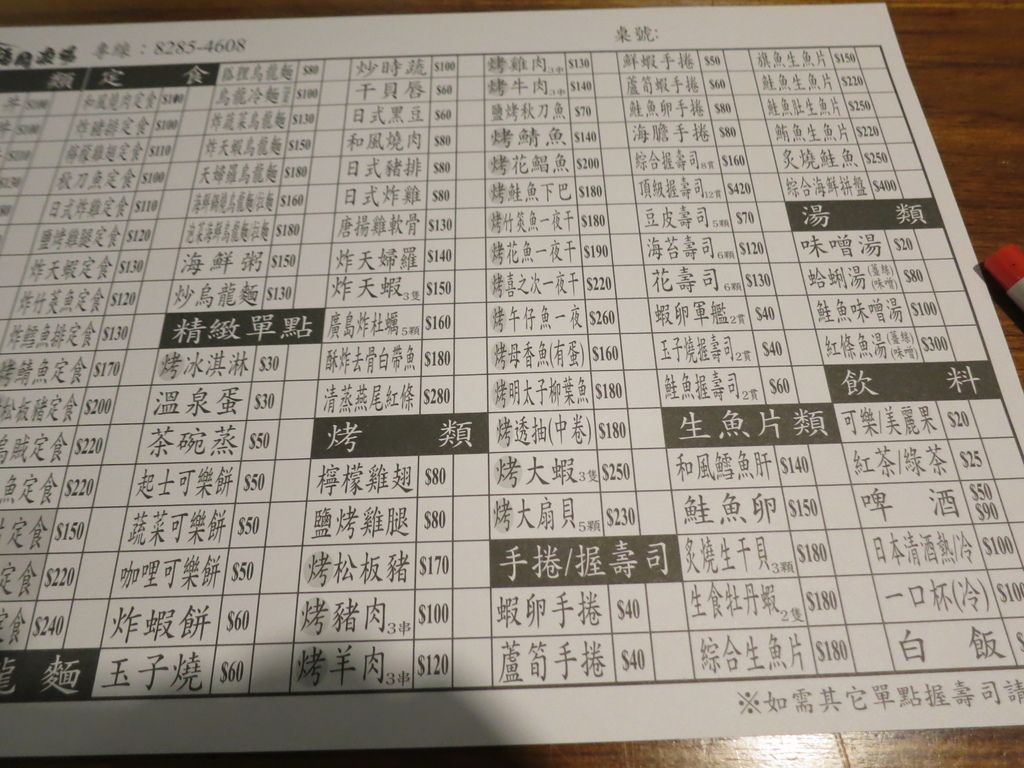 專線：8285-4608
桌號:
類 定 食
和風燒肉定食 $100
炸豬排定食 $100
檸檬雞翅定食 $110
秋刀魚定食 $100
日式炸雞定食 $110
鹽烤雞腿定食 $120
炸天蝦定食 $130
炸竹筴魚定食 $120
炸鱈魚排定食 $130
烤鯖魚定食 $170
松板豬定食 $200
烏賊定食 $220
魚定食 $220
定食 $150
定食 $220
定食 $240
龍麵
狐狸烏龍麵 $80
烏龍冷麵 $100
炸蔬菜烏龍麵 $130
炸天蝦烏龍麵 $150
天婦羅烏龍麵 $180
海鮮鍋燒烏龍麵/拉麵 $160
泡菜海鮮烏龍麵/拉麵 $180
海鮮粥 $150
炒烏龍麵 $130
精緻單點
烤冰淇淋 $30
溫泉蛋 $30
茶碗蒸 $50
起士可樂餅 $50
蔬菜可樂餅 $50
咖哩可樂餅 $50
炸蝦餅 $60
玉子燒 $60
炒時蔬 $100
干貝唇 $60
日式黑豆 $60
和風燒肉 $80
日式豬排 $80
日式炸雞 $80
唐揚雞軟骨 $130
炸天婦羅 $140
炸天蝦3隻 $150
廣島炸牡蠣5顆 $160
酥炸去骨白帶魚 $180
清蒸燕尾紅條 $280
烤 類
檸檬雞翅 $80
鹽烤雞腿 $80
烤松板豬 $170
烤豬肉3串 $100
烤羊肉3串 $120
烤雞肉3串 $130
烤牛肉3串 $140
鹽烤秋刀魚 $70
烤鯖魚 $140
烤花鯧魚 $200
烤鮭魚下巴 $180
烤竹筴魚一夜干 $180
烤花魚一夜干 $190
烤喜之次一夜干 $220
烤午仔魚一夜 $260
烤母香魚(有蛋) $160
烤明太子柳葉魚 $180
烤透抽(中卷) $180
烤大蝦3隻 $250
烤大扇貝5顆 $230
手捲/握壽司
蝦卵手捲 $40
蘆筍手捲 $40
鮮蝦手捲 $50
蘆筍蝦手捲 $60
鮭魚卵手捲 $80
海膽手捲 $80
綜合握壽司8貫 $160
頂級握壽司12貫 $420
豆皮壽司5顆 $70
海苔壽司6顆 $120
花壽司6顆 $130
蝦卵軍艦2貫 $40
玉子燒握壽司2貫 $40
鮭魚握壽司2貫 $60
生魚片類
和風鱈魚肝 $140
鮭魚卵 $150
炙燒生干貝3顆 $180
生食牡丹蝦2隻 $180
綜合生魚片 $180
旗魚生魚片 $150
鮭魚生魚片 $220
鮭魚肚生魚片 $250
鮪魚生魚片 $220
炙燒鮭魚 $250
綜合海鮮拼盤 $400
湯 類
味噌湯 $20
蛤蜊湯(薑絲/味噌) $80
鮭魚味噌湯 $100
紅條魚湯(薑絲/味噌) $300
飲 料
可樂/美麗果 $20
紅茶/綠茶 $25
啤 酒 $50 $90
日本清酒熱/冷 $100
一口杯(冷) $100
白 飯
※如需其它單點握壽司請